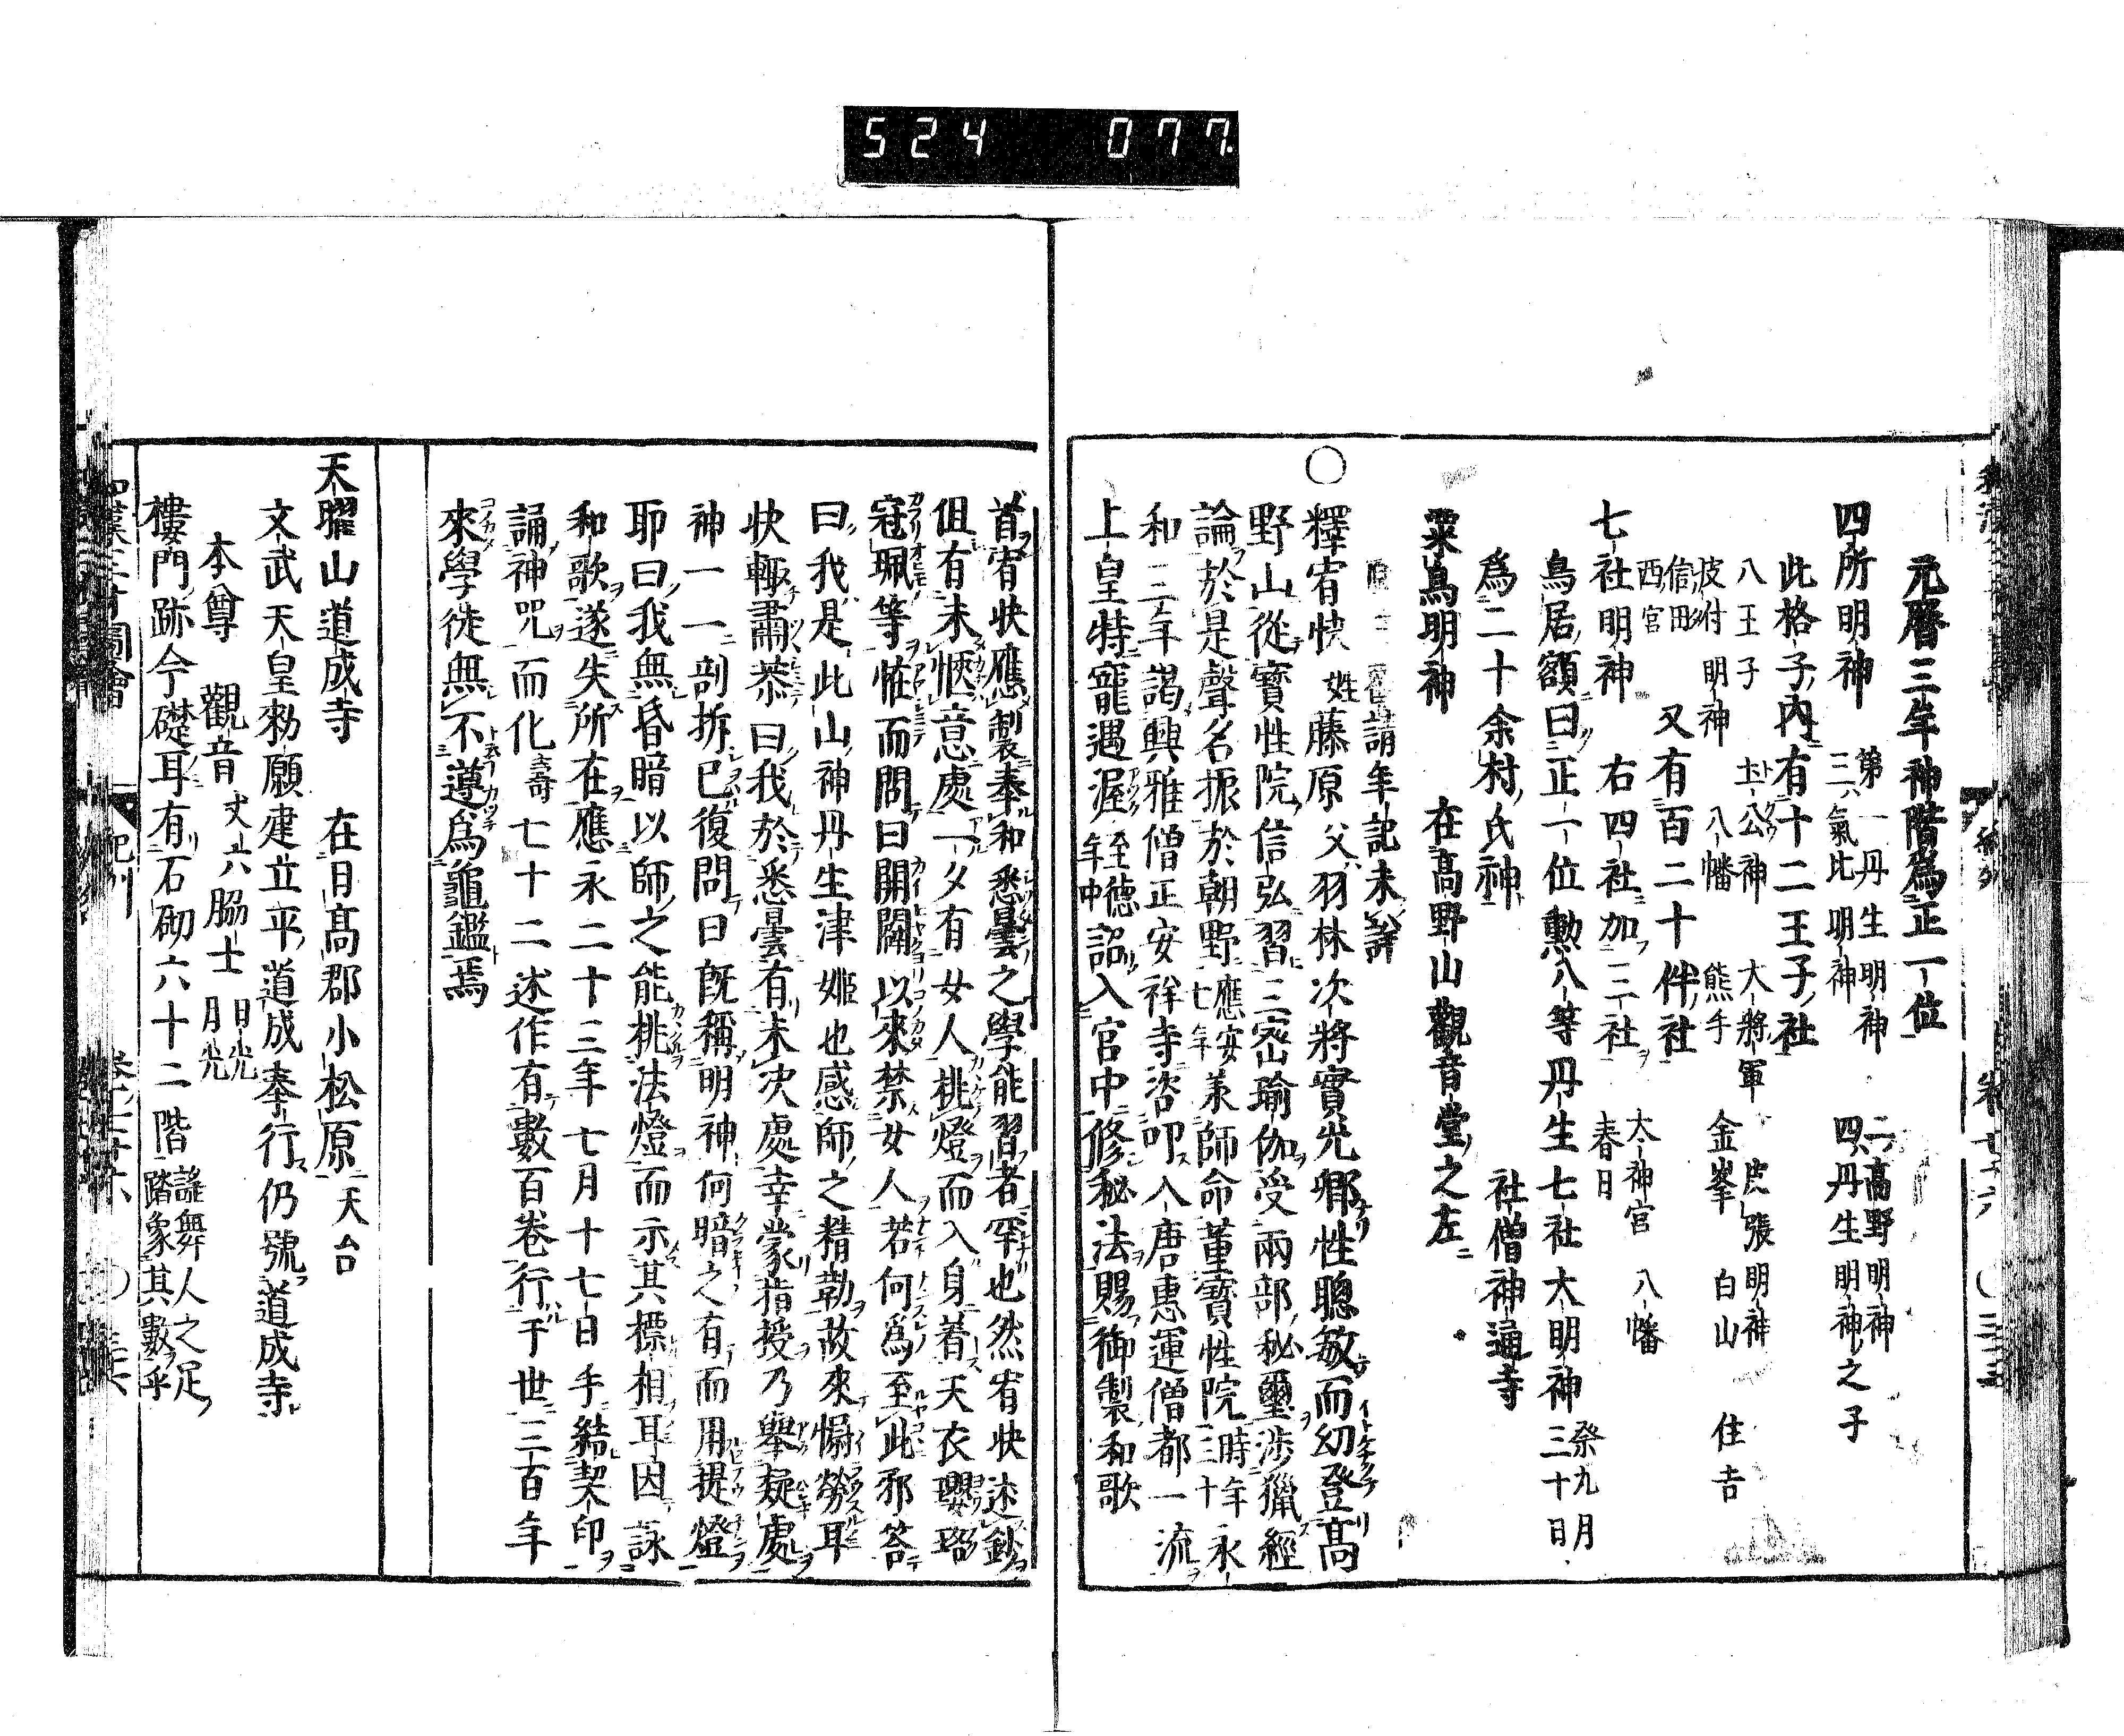 524 077
元暦三年神階爲正一位
四所明神 第一丹生明神 二高野明神
三氣比明神 四丹生明神之子
此格子內有十二王子社
八王子 土公神 大將軍 皮張明神
皮付明神 八幡 熊手 金峯 白山 住吉
信田 西宮 又有百二十伴社 大神宮 八幡
七社明神 右四社加三社 春日
鳥居額曰正一位勲八等丹生七社大明神 祭九月三十日
爲二十余村氏神 社僧神通寺
粟島明神 在髙野山觀音堂之左
請年記未詳
〇釋宥快 姓藤原父羽林次將實光卿性聰敏而幼登髙
野山從寳性院信弘習三密瑜伽受兩部秘璽渉獵經
論於是聲名振於朝野 應安七年 羕師命董寳性院 時年三十 永
和三年謁興雅僧正安祥寺咨叩入唐惠運僧都一流
上皇特寵遇渥 至德年中 詔入官中修秘法賜御製和歌
首宥快應製奉和悉曇之學能習者罕也然宥快述鈔
伹有未愜意處一夕有女人挑燈而入身着天衣瓔珞
冠珮等恠而問曰開闢以來禁女人若何爲至此邪答
曰我是此山神丹生津姫也感師之精勤故來慰勞耳
快輙肅恭曰我於悉曇有未决處幸蒙指授乃舉疑處
神一一剖拆已復問曰旣稱明神何暗之有而用提燈
耶曰我無昏暗以師之能挑法燈而示其標相耳因詠
和歌遂失所在應永二十三年七月十七日手結契印
誦神咒而化 壽七十二 述作有數百卷行于世三百年
來學徒無不遵爲龜鑑焉
天曜山道成寺 在日髙郡小松原 天台
文武天皇勅願建立平道成奉行仍號道成寺
本尊 觀音 丈六 脇士 日光 月光
樓門跡今礎耳有石砌六十二階 謡舞人之足踏象其數乎